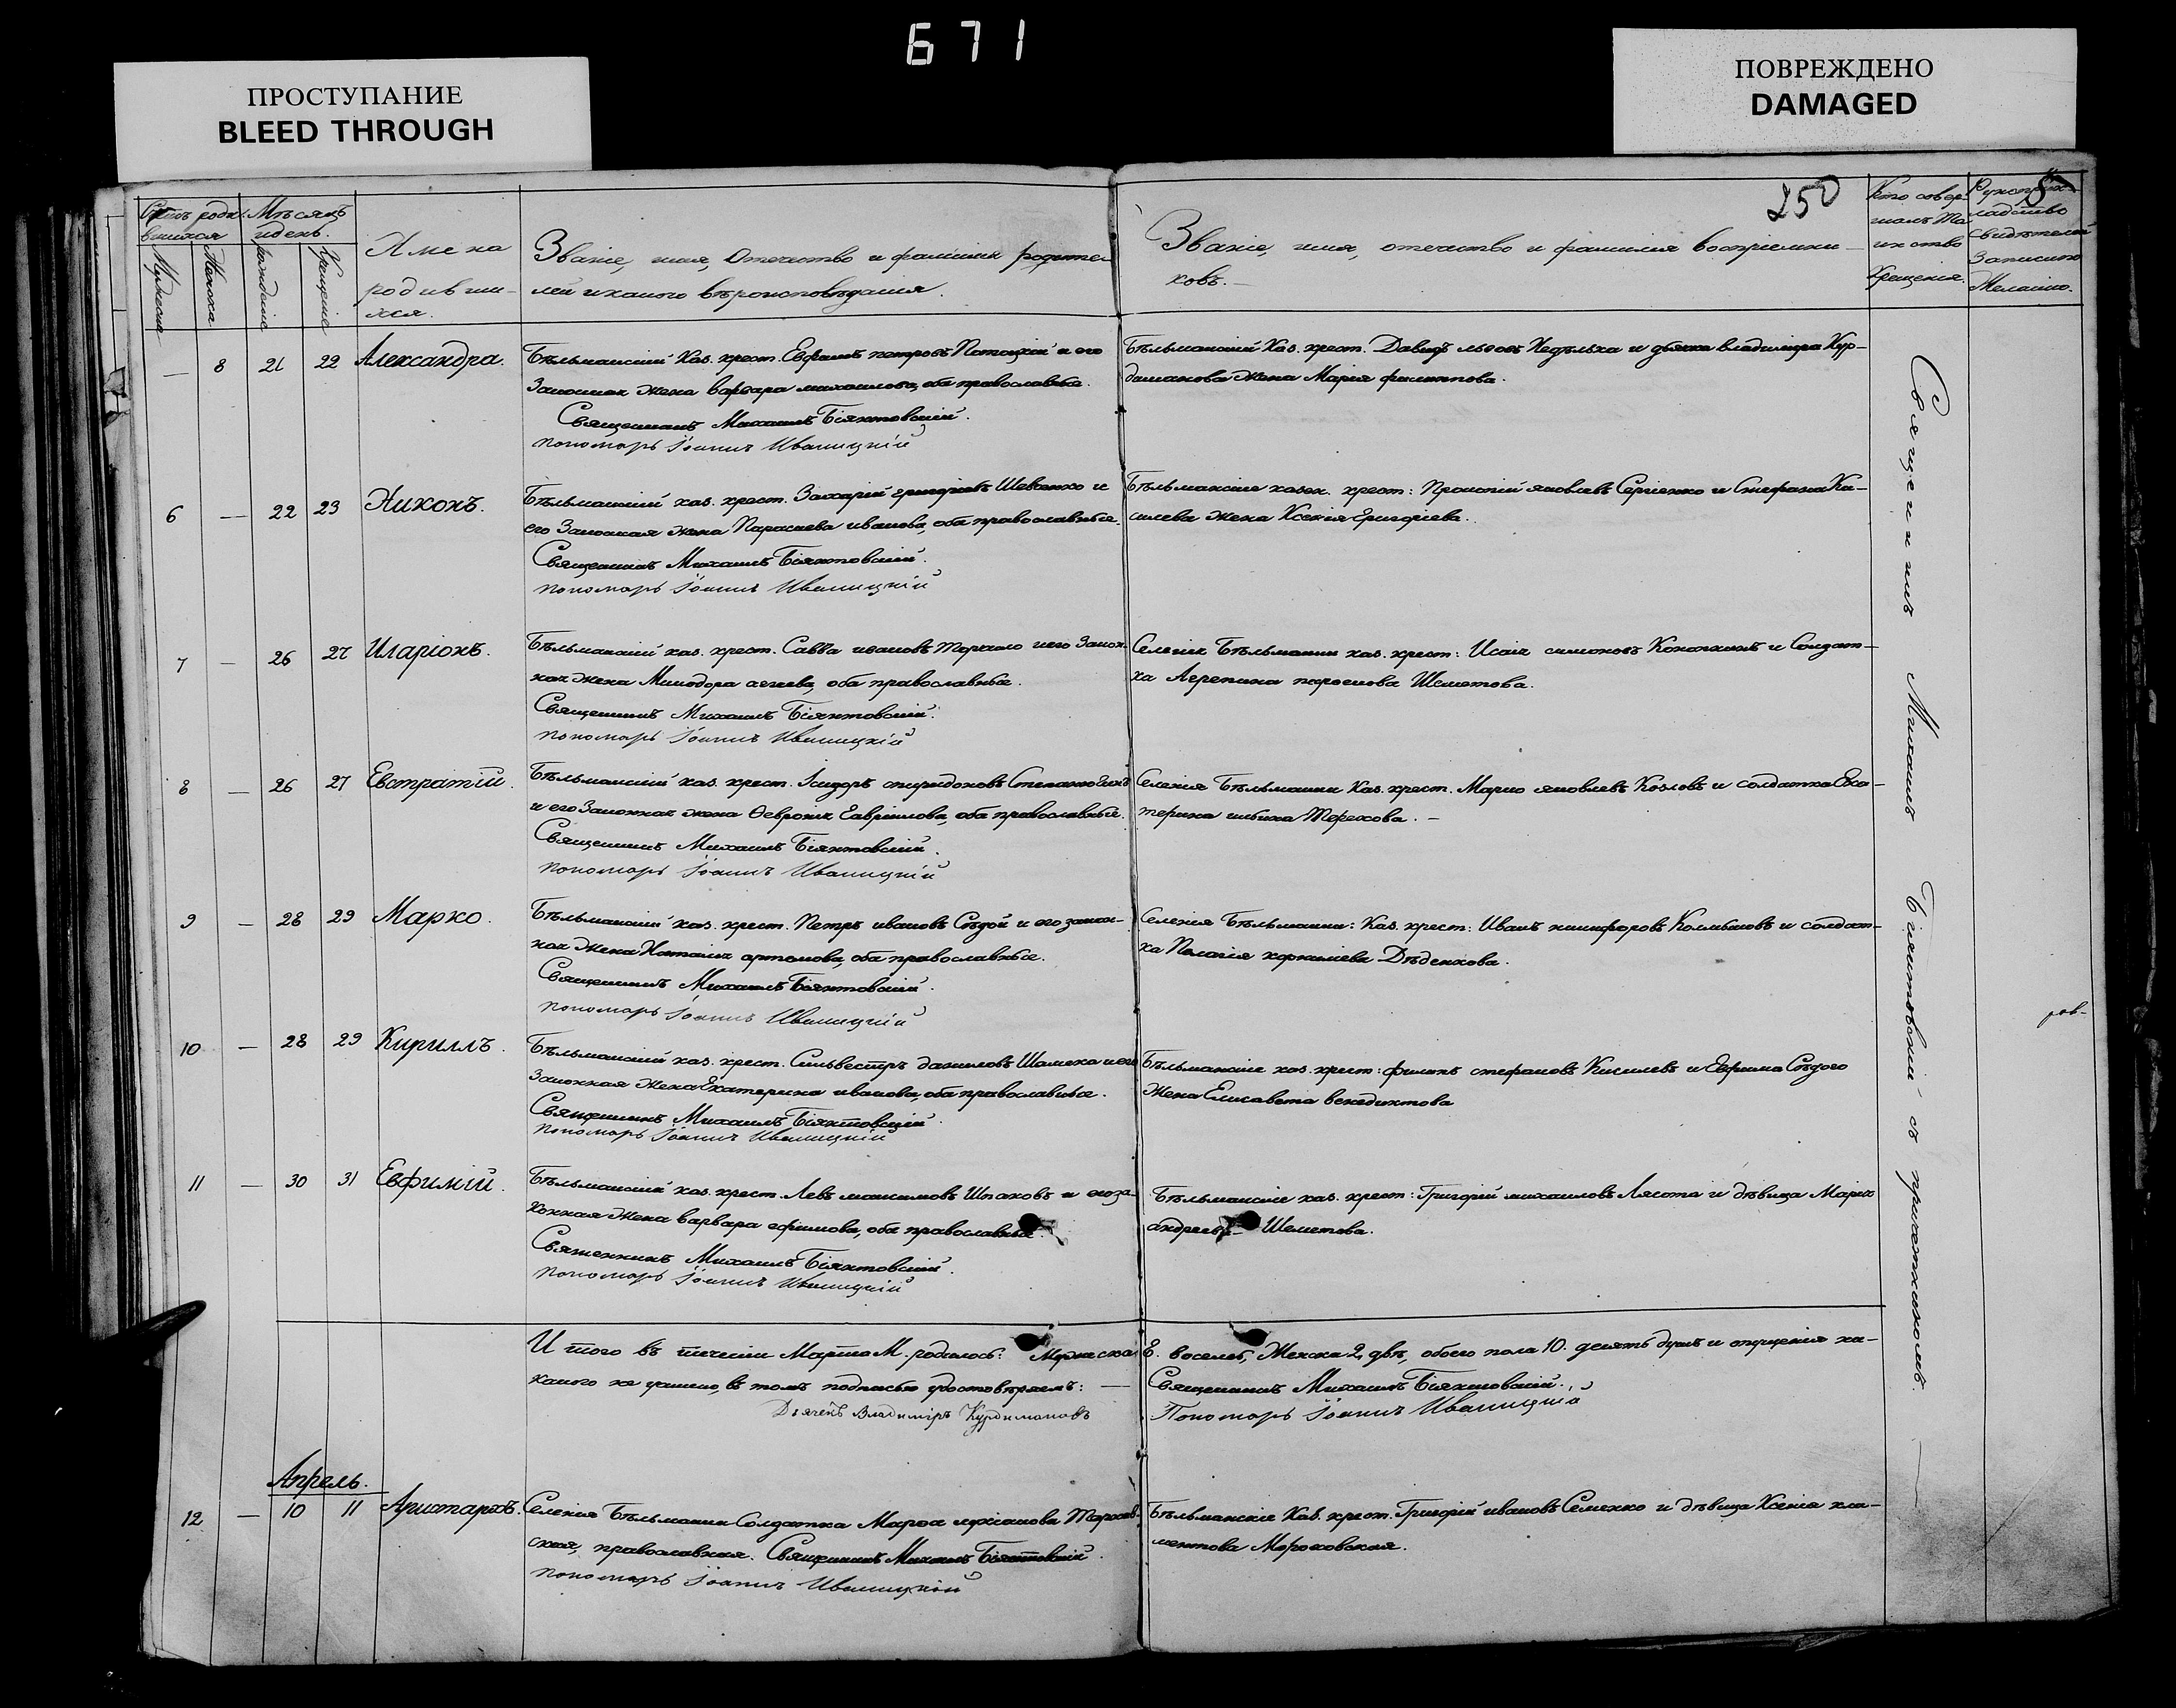 671
ПРОСТУПАНИЕ
BLEED THROUGH
ПОВРЕЖДЕНО
DAMAGED
250
8
Счетъ роди-
вшихся
Мѣсяцъ
и день.
Мужеска
Женска
рожденіе
Крещеніе
Имена
родивши-
хся.
Званіе, имя, Отечество и фамиліи родите-
лей и какого вѣроисповѣданія.
Званіе, имя, отечество и фамилія воспріемни-
ковъ.
Кто совер-
шалъ Та-
инство
Крещенія.
Рукопри-
кладство
Свидѣтелей
Записи по
Желанію.
— 8 21 22 Александра.
Бѣльманскій Каз. крест. Ефимъ петровъ Потоцкій и его
Законная Жена варвара михаилова, оба православные.
Священникъ Михаилъ Біянтовскій.
пономарь Іоаннъ Иваницкій
Бѣльманскій Каз. крест. Давидъ львовъ Недѣлька и дьячка владиміра Кур-
диманова Жена Марія филиппова.
6 — 22 23 Никонъ.
Бѣльманскій каз. крест. Захарій григоріевъ Шевченко и
его Законная Жена Параскева иванова, оба православные.
Священникъ Михаилъ Біянтовскій.
пономарь Іоаннъ Иваницкій
Бѣльманскіе казен. крест: Прокопій яковлевъ Сергіенко и Стефана Ки-
силева Жена Ксенія Григоріева.
7 — 26 27 Иларіонъ.
Бѣльманскій каз. крест. Савва ивановъ и его Закон-
ная Жена Милодора оба православные.
Священникъ Михаилъ Біянтовскій.
пономарь Іоаннъ Иваницкій
Селенія Бѣльманки каз. крест: Исаія симоновъ и Солдат-
ка Шеметова.
8 — 26 27 Евстратій.
Бѣльманскій каз. крест. Ісидоръ спиридоновъ
и его Законная жена Ѳевронія Гавріилова, оба православные.
Священникъ Михаилъ Біянтовскій.
пономарь Іоаннъ Иваницкій
Селенія Бѣльманки Каз. крест. Марко яковлевъ Козловъ и солдатка Ека-
терина ильина Терехова. —
9 — 28 29 Марко.
Бѣльманскій каз. крест. Петръ ивановъ Сѣдой и его закон-
ная Жена Наталія артемова, оба православные.
Священникъ Михаилъ Біянтовскій.
пономарь Іоаннъ Иваницкій
Селенія Бѣльманки: Каз. крест: Иванъ никифоровъ и солдат-
ка Пелагія корнилiева Дѣденкова.
10 — 28 29 Кириллъ.
Бѣльманскій каз. крест. Сильвестръ даниловъ и его
Законная Жена Екатерина иванова, оба православные.
Священникъ Михаилъ Біянтовскій.
пономарь Іоаннъ Иваницкій
Бѣльманскіе каз. крест: филипъ стефановъ Кисилевъ и Ефима Сѣдого
Жена Елисавета венедиктова
11 — 30 31 Евфимій.
Бѣльманскій каз. крест. Левъ максимовъ Шпаковъ и его за-
конная Жена варвара ефимова, оба православные.
Священникъ Михаилъ Біянтовскій.
пономарь Іоаннъ Иваницкій
Бѣльманскіе каз. крест: Григорій михаиловъ Лясота и дѣвица Марія
андреева Шеметова.
И того въ теченіи Марта М. родилось: Мужеска
8. восемь, Женска 2, двѣ, обоего пола 10. десять душъ и опущенія ка-
каго не учинено, въ томъ подписью удостовѣряемъ: —
Священникъ Михаилъ Біянтовскій.
Дьячекъ Владиміръ Курдимановъ
Пономарь Іоаннъ Иваницкій
Апрель.
12 — 10 11 Аристархъ.
Селенія Бѣльманки Солдатка Марѳа лукіанова
ская, православная. Священникъ Михаилъ Біянтовскій.
пономарь Іоаннъ Иваницкій
Бѣльманскіе Каз. крест. Григорій ивановъ Семенко и дѣвица Ксенія кли-
ментова Мороховская.
Священникъ Михаилъ Біянтовскій съ причетникомъ. —
ров-